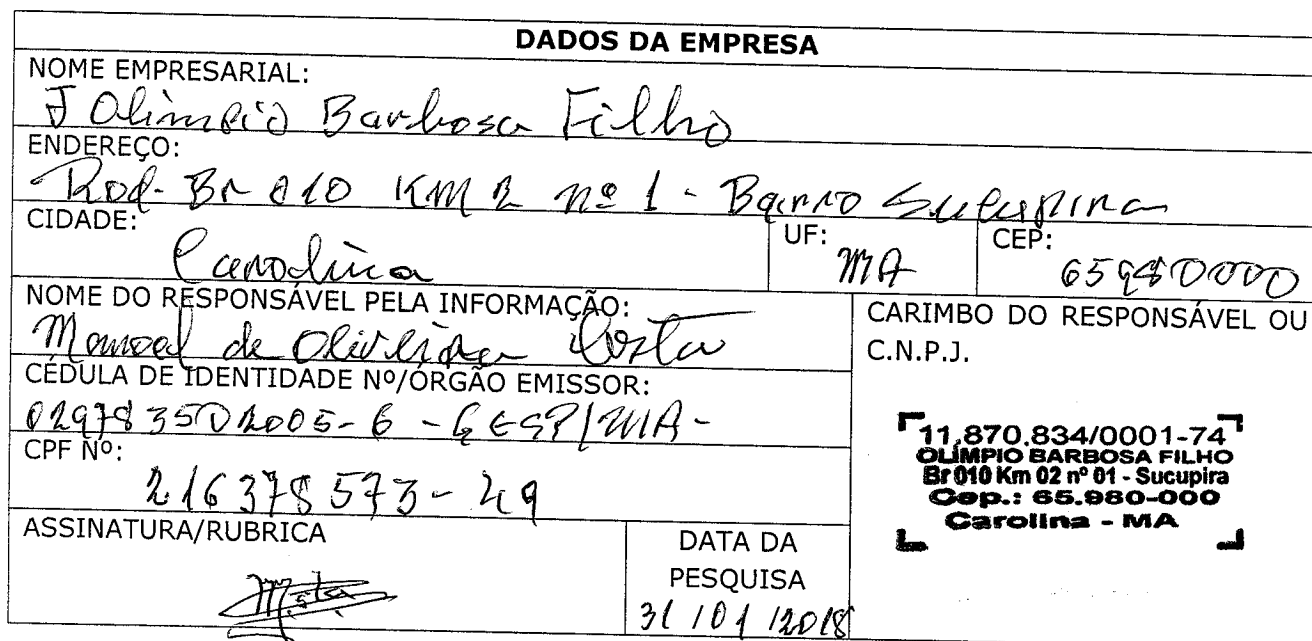 DADOS DA EMPRESA
NOME EMPRESARIAL:
J Olimpio Barbosa Filho
ENDEREÇO:
Rod- Br 010 KM 2 nº 1 - Bairro Sucupira
CIDADE:
Carolina
UF:
MA
CEP:
65980000
NOME DO RESPONSÁVEL PELA INFORMAÇÃO:
Manoel de Oliveira Costa
CÉDULA DE IDENTIDADE Nº/ÓRGÃO EMISSOR:
029783502005-6 - GESP/MA-
CPF Nº:
216378573-49
ASSINATURA/RUBRICA
DATA DA
PESQUISA
31/01/2018
CARIMBO DO RESPONSÁVEL OU
C.N.P.J.
11.870.834/0001-74
OLÍMPIO BARBOSA FILHO
Br 010 Km 02 nº 01 - Sucupira
Cep.: 65.980-000
Carolina - MA